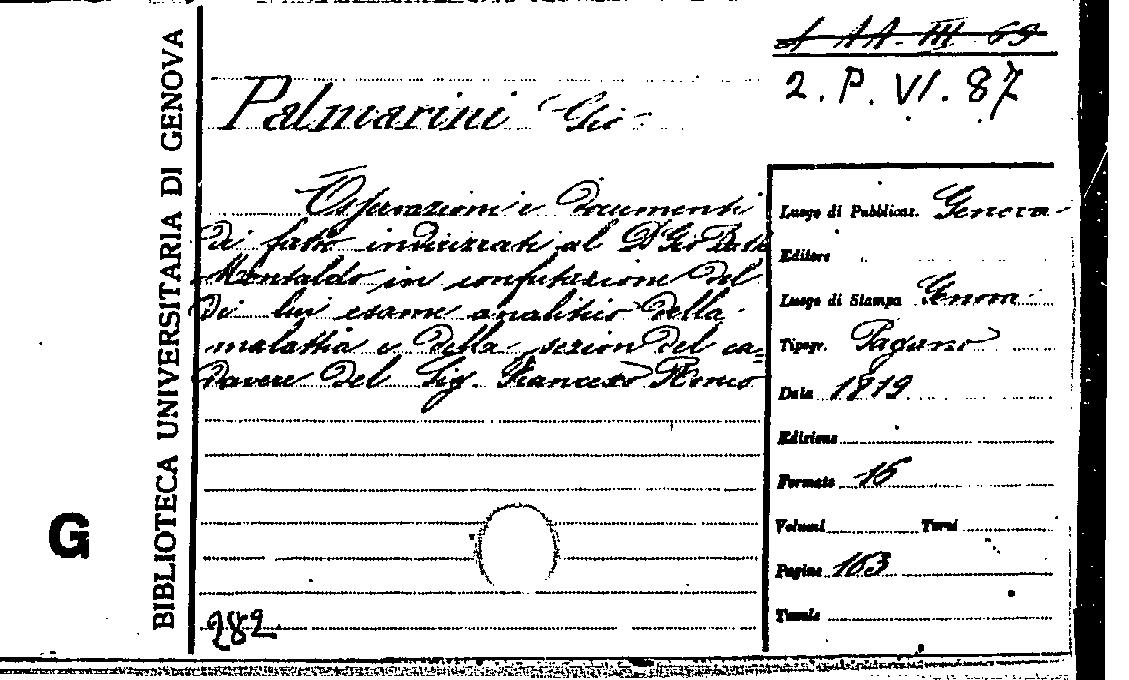 BIBLIOTECA UNIVERSITARIA DI GENOVA
G
1 AA. III 69
2. P. VI. 87
Palmarini Gio
Osservazioni e documenti
di fatto indirizzati al Dr Gio Batt
Montaldo in confutazione del
di lui esame analitico della
malattia e della sezion del ca=
davere del Sig. Francesco
282
Luogo di Pubblicaz. Genova
Editore
Luogo di Stampa Genova
Tipogr. Pagano
Data 1819
Edizione
Formato 16
Volumi Tomi
Pagine 163
Tavole